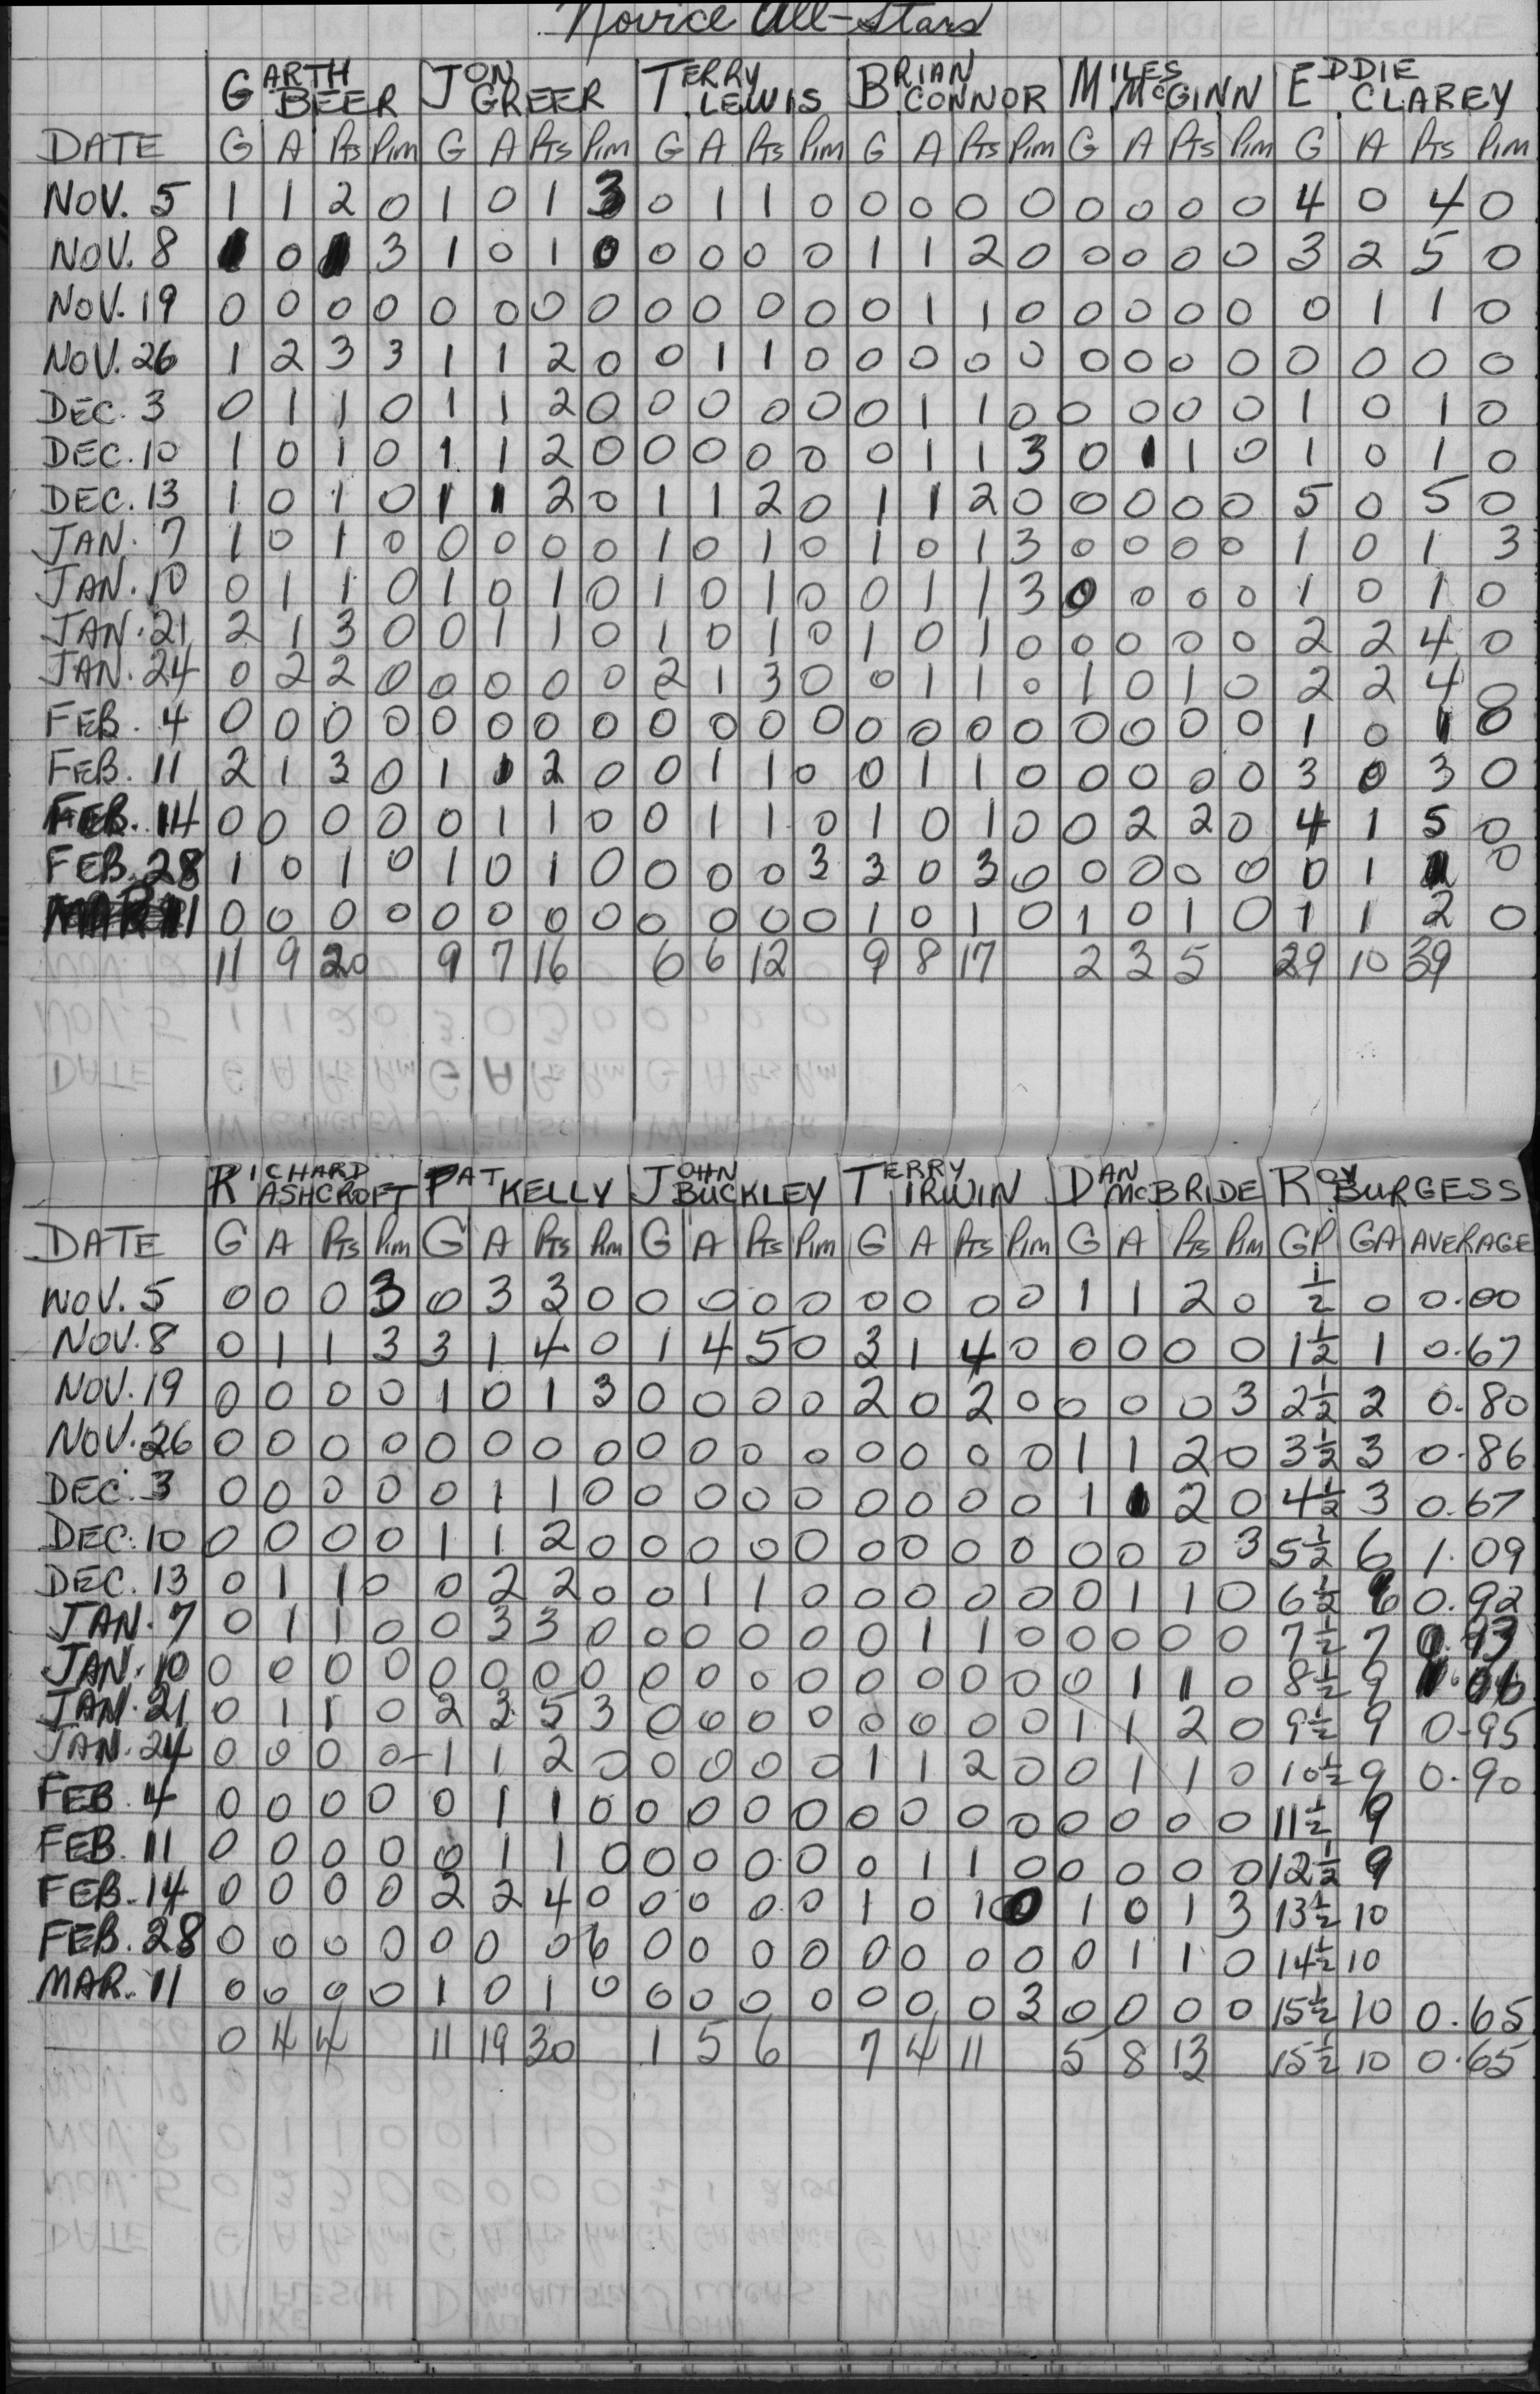 Novice All-Stars
GARTH BEER JON GREER TERRY LEWIS BRIAN CONNOR MILES McGINN EDDIE CLAREY
DATE G A Pts Pim G A Pts Pim G A Pts Pim G A Pts Pim G A Pts Pim G A Pts Pim
NOV. 5 1 1 2 0 1 0 1 3 0 1 1 0 0 0 0 0 0 0 0 0 4 0 4 0
NOV. 8 1 0 1 3 1 0 1 0 0 0 0 0 1 1 2 0 0 0 0 0 3 2 5 0
NOV. 19 0 0 0 0 0 0 0 0 0 0 0 0 0 1 1 0 0 0 0 0 0 1 1 0
NOV. 26 1 2 3 3 1 1 2 0 0 1 1 0 0 0 0 0 0 0 0 0 0 0 0 0
DEC. 3 0 1 1 0 1 1 2 0 0 0 0 0 0 1 1 0 0 0 0 0 1 0 1 0
DEC. 10 1 0 1 0 1 1 2 0 0 0 0 0 0 1 1 3 0 1 1 0 1 0 1 0
DEC. 13 1 0 1 0 1 1 2 0 1 1 2 0 1 1 2 0 0 0 0 0 5 0 5 0
JAN. 7 1 0 1 0 0 0 0 0 1 0 1 0 1 0 1 3 0 0 0 0 1 0 1 3
JAN. 10 0 1 1 0 1 0 1 0 1 0 1 0 0 1 1 3 0 0 0 0 1 0 1 0
JAN. 21 2 1 3 0 0 1 1 0 1 0 1 0 1 0 1 0 0 0 0 0 2 2 4 0
JAN. 24 0 2 2 0 0 0 0 0 2 1 3 0 0 1 1 0 1 0 1 0 2 2 4 0
FEB. 4 0 0 0 0 0 0 0 0 0 0 0 0 0 0 0 0 0 0 0 0 1 0 1 0
FEB. 11 2 1 3 0 1 1 2 0 0 1 1 0 0 1 1 0 0 0 0 0 3 0 3 0
FEB. 14 0 0 0 0 0 1 1 0 0 1 1 0 1 0 1 0 0 2 2 0 4 1 5 0
FEB. 28 1 0 1 0 1 0 1 0 0 0 0 3 3 0 3 0 0 0 0 0 0 1 1 0
MAR 11 0 0 0 0 0 0 0 0 0 0 0 0 1 0 1 0 1 0 1 0 1 1 2 0
11 9 20 9 7 16 6 6 12 9 8 17 2 3 5 29 10 39
RICHARD ASHCROFT PAT KELLY JOHN BUCKLEY TERRY IRWIN DAN McBRIDE ROY BURGESS
DATE G A Pts Pim G A Pts Pim G A Pts Pim G A Pts Pim G A Pts Pim GP GA AVERAGE
NOV. 5 0 0 0 3 0 3 3 0 0 0 0 0 0 0 0 0 1 1 2 0 1/2 0 0.00
NOV. 8 0 1 1 3 3 1 4 0 1 4 5 0 3 1 4 0 0 0 0 0 1 1/2 1 0.67
NOV. 19 0 0 0 0 1 0 1 3 0 0 0 0 2 0 2 0 0 0 0 3 2 1/2 2 0.80
NOV. 26 0 0 0 0 0 0 0 0 0 0 0 0 0 0 0 0 1 1 2 0 3 1/2 3 0.86
DEC. 3 0 0 0 0 0 1 1 0 0 0 0 0 0 0 0 0 1 1 2 0 4 1/2 3 0.67
DEC. 10 0 0 0 0 1 1 2 0 0 0 0 0 0 0 0 0 0 0 0 3 5 1/2 6 1.09
DEC. 13 0 1 1 0 0 2 2 0 0 1 1 0 0 0 0 0 0 1 1 0 6 1/2 6 0.92
JAN. 7 0 1 1 0 0 3 3 0 0 0 0 0 0 1 1 0 0 0 0 0 7 1/2 7 0.93
JAN. 10 0 0 0 0 0 0 0 0 0 0 0 0 0 0 0 0 0 1 1 0 8 1/2 9 1.06
JAN. 21 0 1 1 0 2 3 5 3 0 0 0 0 0 0 0 0 1 1 2 0 9 1/2 9 0.95
JAN. 24 0 0 0 0 1 1 2 0 0 0 0 0 1 1 2 0 0 1 1 0 10 1/2 9 0.90
FEB. 4 0 0 0 0 0 1 1 0 0 0 0 0 0 0 0 0 0 0 0 0 11 1/2 9
FEB. 11 0 0 0 0 0 1 1 0 0 0 0 0 0 1 1 0 0 0 0 0 12 1/2 9
FEB. 14 0 0 0 0 2 2 4 0 0 0 0 0 1 0 1 0 1 0 1 3 13 1/2 10
FEB. 28 0 0 0 0 0 0 0 6 0 0 0 0 0 0 0 0 0 1 1 0 14 1/2 10
MAR. 11 0 0 0 0 1 0 1 0 0 0 0 0 0 0 0 3 0 0 0 0 15 1/2 10 0.65
0 4 4 11 19 30 1 5 6 7 4 11 5 8 13 15 1/2 10 0.65